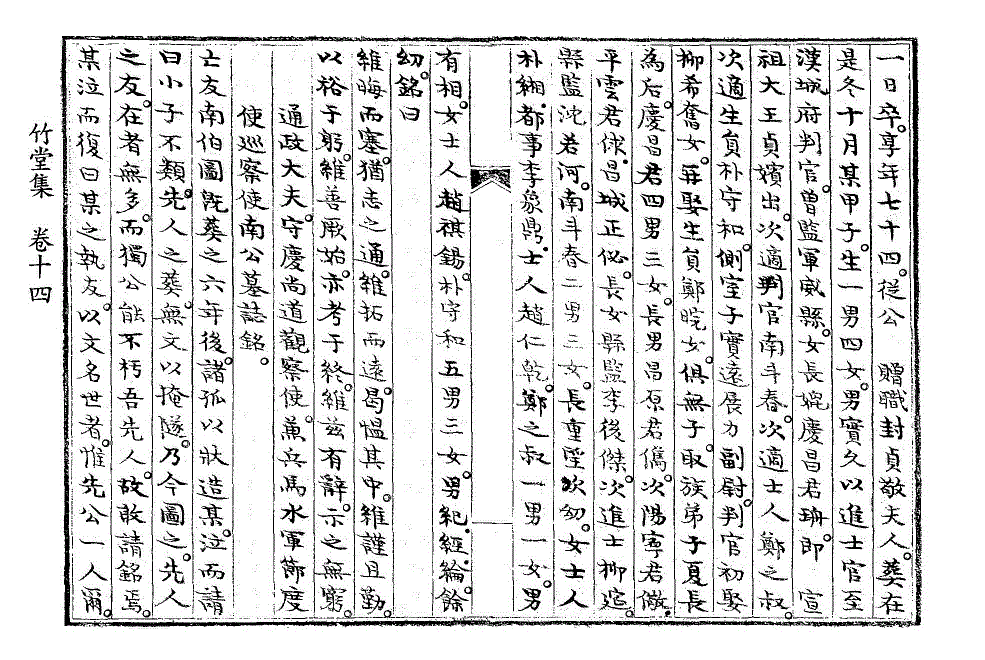 一日卒享年七十四從公　贈職封貞敬夫人葬在
是冬十月某甲子生一男四女男實久以進士官至
漢城府判官曾監軍威縣女長婉慶昌君珘即　宣
祖大王貞嬪出次適判官南斗春次適士人鄭之叔
次適生員朴守和側室子實遠展力副尉判官初娶
柳希奮女再娶生員鄭晥女俱無子取族弟子夏長
為后慶昌君四男三女長男昌原君儁次陽寧君儆
平雲君俅昌城正佖長女縣監李後傑次進士柳㝎
縣監沈若河南斗春二男三女長重望次幼女士人
朴緗都事李象鼎士人趙仁乾鄭之叔一男一女男
有相女士人趙祺錫朴守和五男三女男紀經綸餘
幼銘曰
維晦而塞猶志之通維拓而遠曷愠其中維謹且勤
以裕于躬維善厥始亦考于終維玆有辭示之無窮
通政大夫守慶尚道觀察使兼兵馬水軍節度
使巡察使南公墓誌銘
亡友南伯圖旣葬之六年後諸孤以狀造某泣而請
曰小子不類先人之葬無文以掩隧乃今圖之先人
之友在者無多而獨公能不朽吾先人故敢請銘焉
某泣而復曰某之執友以文名世者惟先公一人爾
竹堂集　卷十四